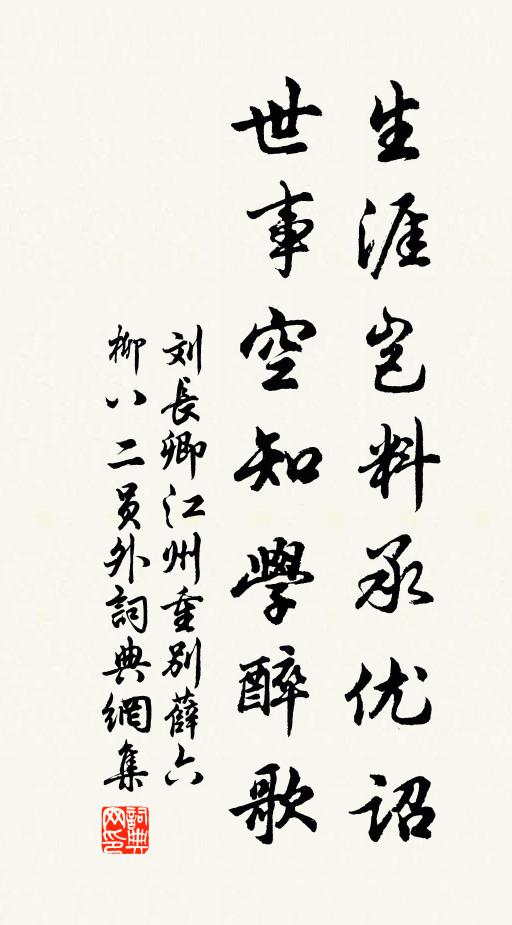 生涯岂料承优詔
世事空知學醉歌
刘長卿江州重别薛六
柳八二员外詞典網集
詞典網印